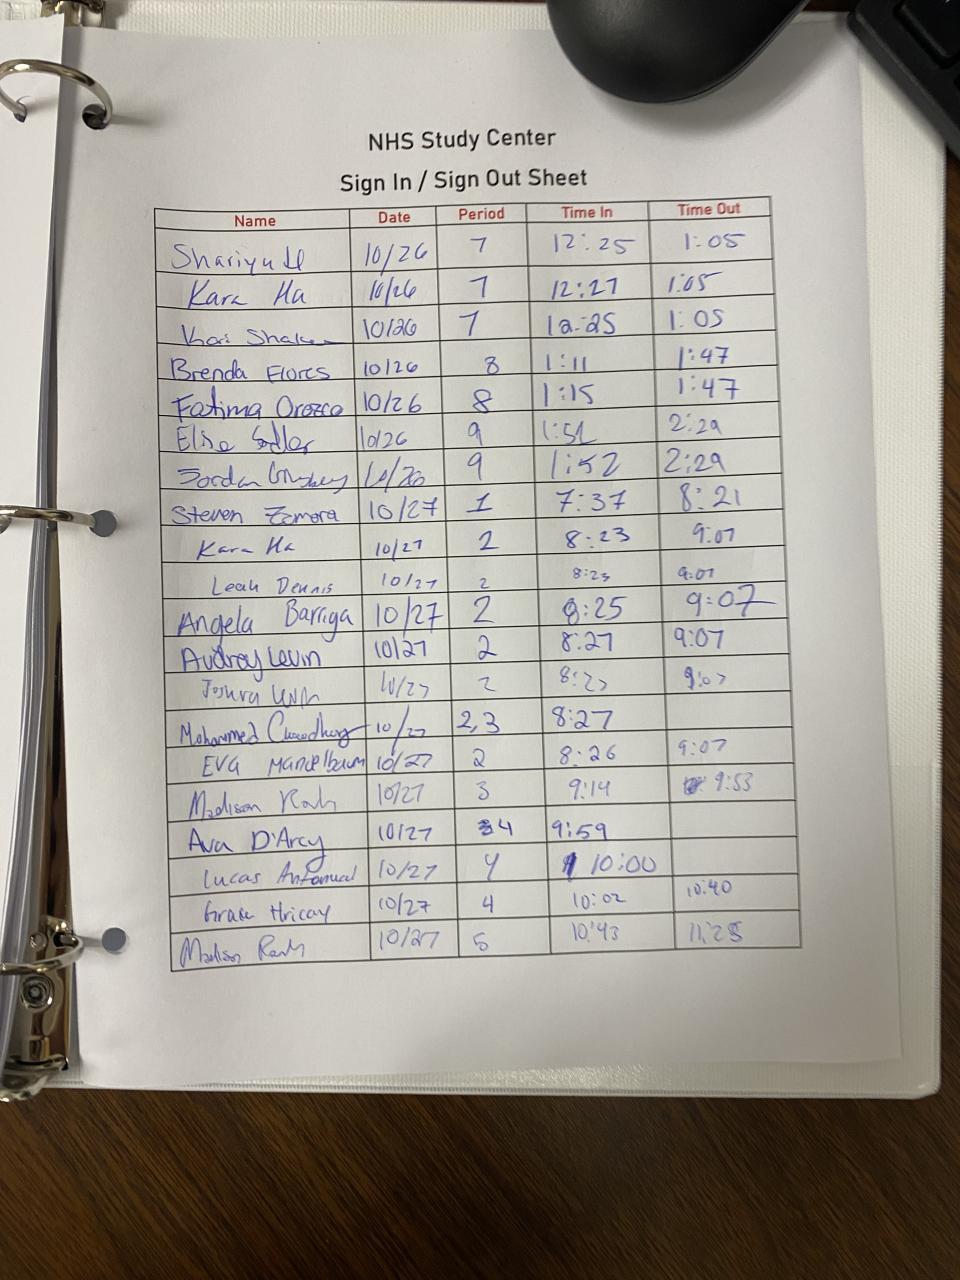 NHS Study Center
Sign In / Sign Out Sheet
Name Date Period Time In Time Out
10/26 7 12:25 1:05
Kara Ha 10/26 7 12:27 1:05
10/26 7 12:25 1:05
Brenda Flores 10/26 8 1:11 1:47
Fatima Orozco 10/26 8 1:15 1:47
Elise 10/26 9 2:29
Jordan 10/26 9 1:52 2:29
Steven Zamora 10/27 1 7:37 8:21
Kara Ha 10/27 2 8:23 9:07
Leah Dennis 10/27 2 8:23 9:07
Angela Barriga 10/27 2 8:25 9:07
Audrey Levin 10/27 2 8:27 9:07
Joshua 10/27 2 8:27 9:07
Mohammed Chowdhury 10/27 2,3 8:27
EVA Mandelbaum 10/27 2 8:26 9:07
Madison 10/27 3 9:14 9:53
Ava D'Arcy 10/27 4 9:59
Lucas 10/27 4 10:00
Grace Hricay 10/27 4 10:02 10:40
Madison 10/27 5 10:43 11:25